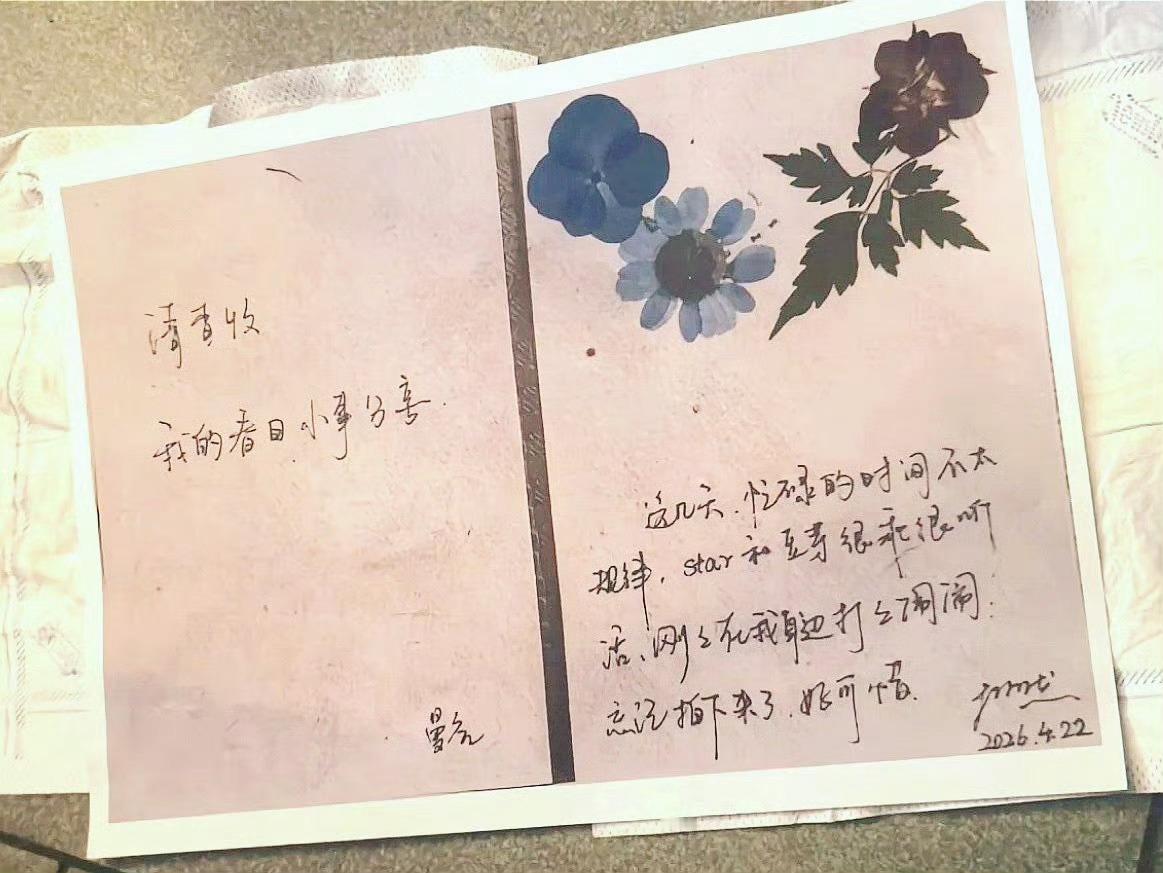 清查收
我的春日小事分享.
曼
这几天,忙碌的时间不太
规律,star和至尊很乖很听
话,刚刚在我身边打打闹闹.
忘记拍下来了,好可惜.
2026.4.22